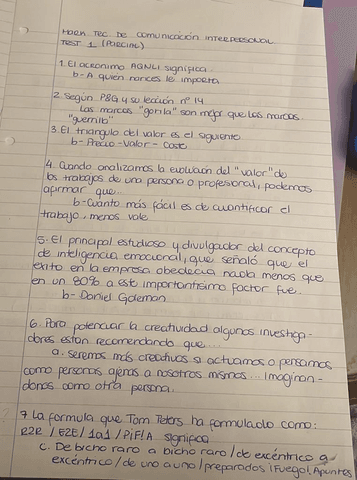 MARK TEC DE COMUNICACIÓN INTERPERSONAL
TEST 1 (PARCIAL)
1. El acrónimo AQNLI significa
b- A quien narices le importa
2. Según P&G y su lección nº 14
Las marcas "gorila" son mejor que las marcas
"guerrilla"
3. El triangulo del valor es el siguiente
b- Precio - Valor - Coste
4. Cuando analizamos la evolucion del "valor" de
los trabajos de una persona o profesional, podemos
afirmar que...
b- Cuánto más fácil es de cuantificar el
trabajo, menos vale
5- El principal estudioso y divulgador del concepto
de inteligencia emocional, que señaló que el
éxito en la empresa obedecía nada menos que
en un 80% a este importantísimo factor fue.
b- Daniel Goleman
6. Para potenciar la creatividad algunos investiga-
dores estan recomendando que
a. seremos más creativos si actuamos o pensamos
como personas ajenas a nosotros mismos... Imaginan-
donos como otra persona.
7 La formula que Tom Peters ha formulado como:
R2R / E2E / 1a1 / P¡F!A significa
c. De bicho raro a bicho raro / de excéntrico a
excéntrico / de uno a uno / preparados ¡Fuego! Apunten